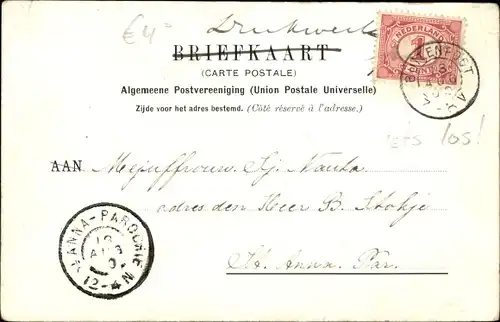 €4=
Drukwerk
BRIEFKAART
(CARTE POSTALE)
Algemeene Postvereeniging (Union Postale Universelle)
Zijde voor het adres bestemd. (Côté réservé à l'adresse.)
NEDERLAND
1
iets los!
AAN Mejuffrouw Sj. Nauta
adres den Heer B.
St. Anna Par.
ANNA-PAROCHIE
12-4N